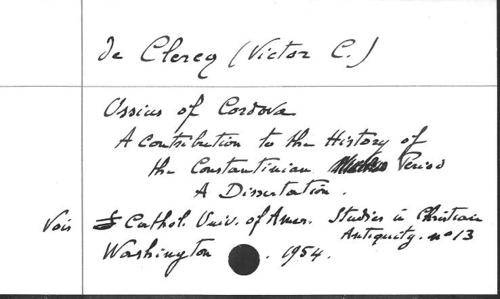 De Clercq (Victor C.)
Ossius of Cordova
A contribution to the History of
the Constantinian Period
A Dissertation.
Vois Cathol. Univ. of Amer. Studies in Christian
Antiquity. nº 13
Washington . 1954.